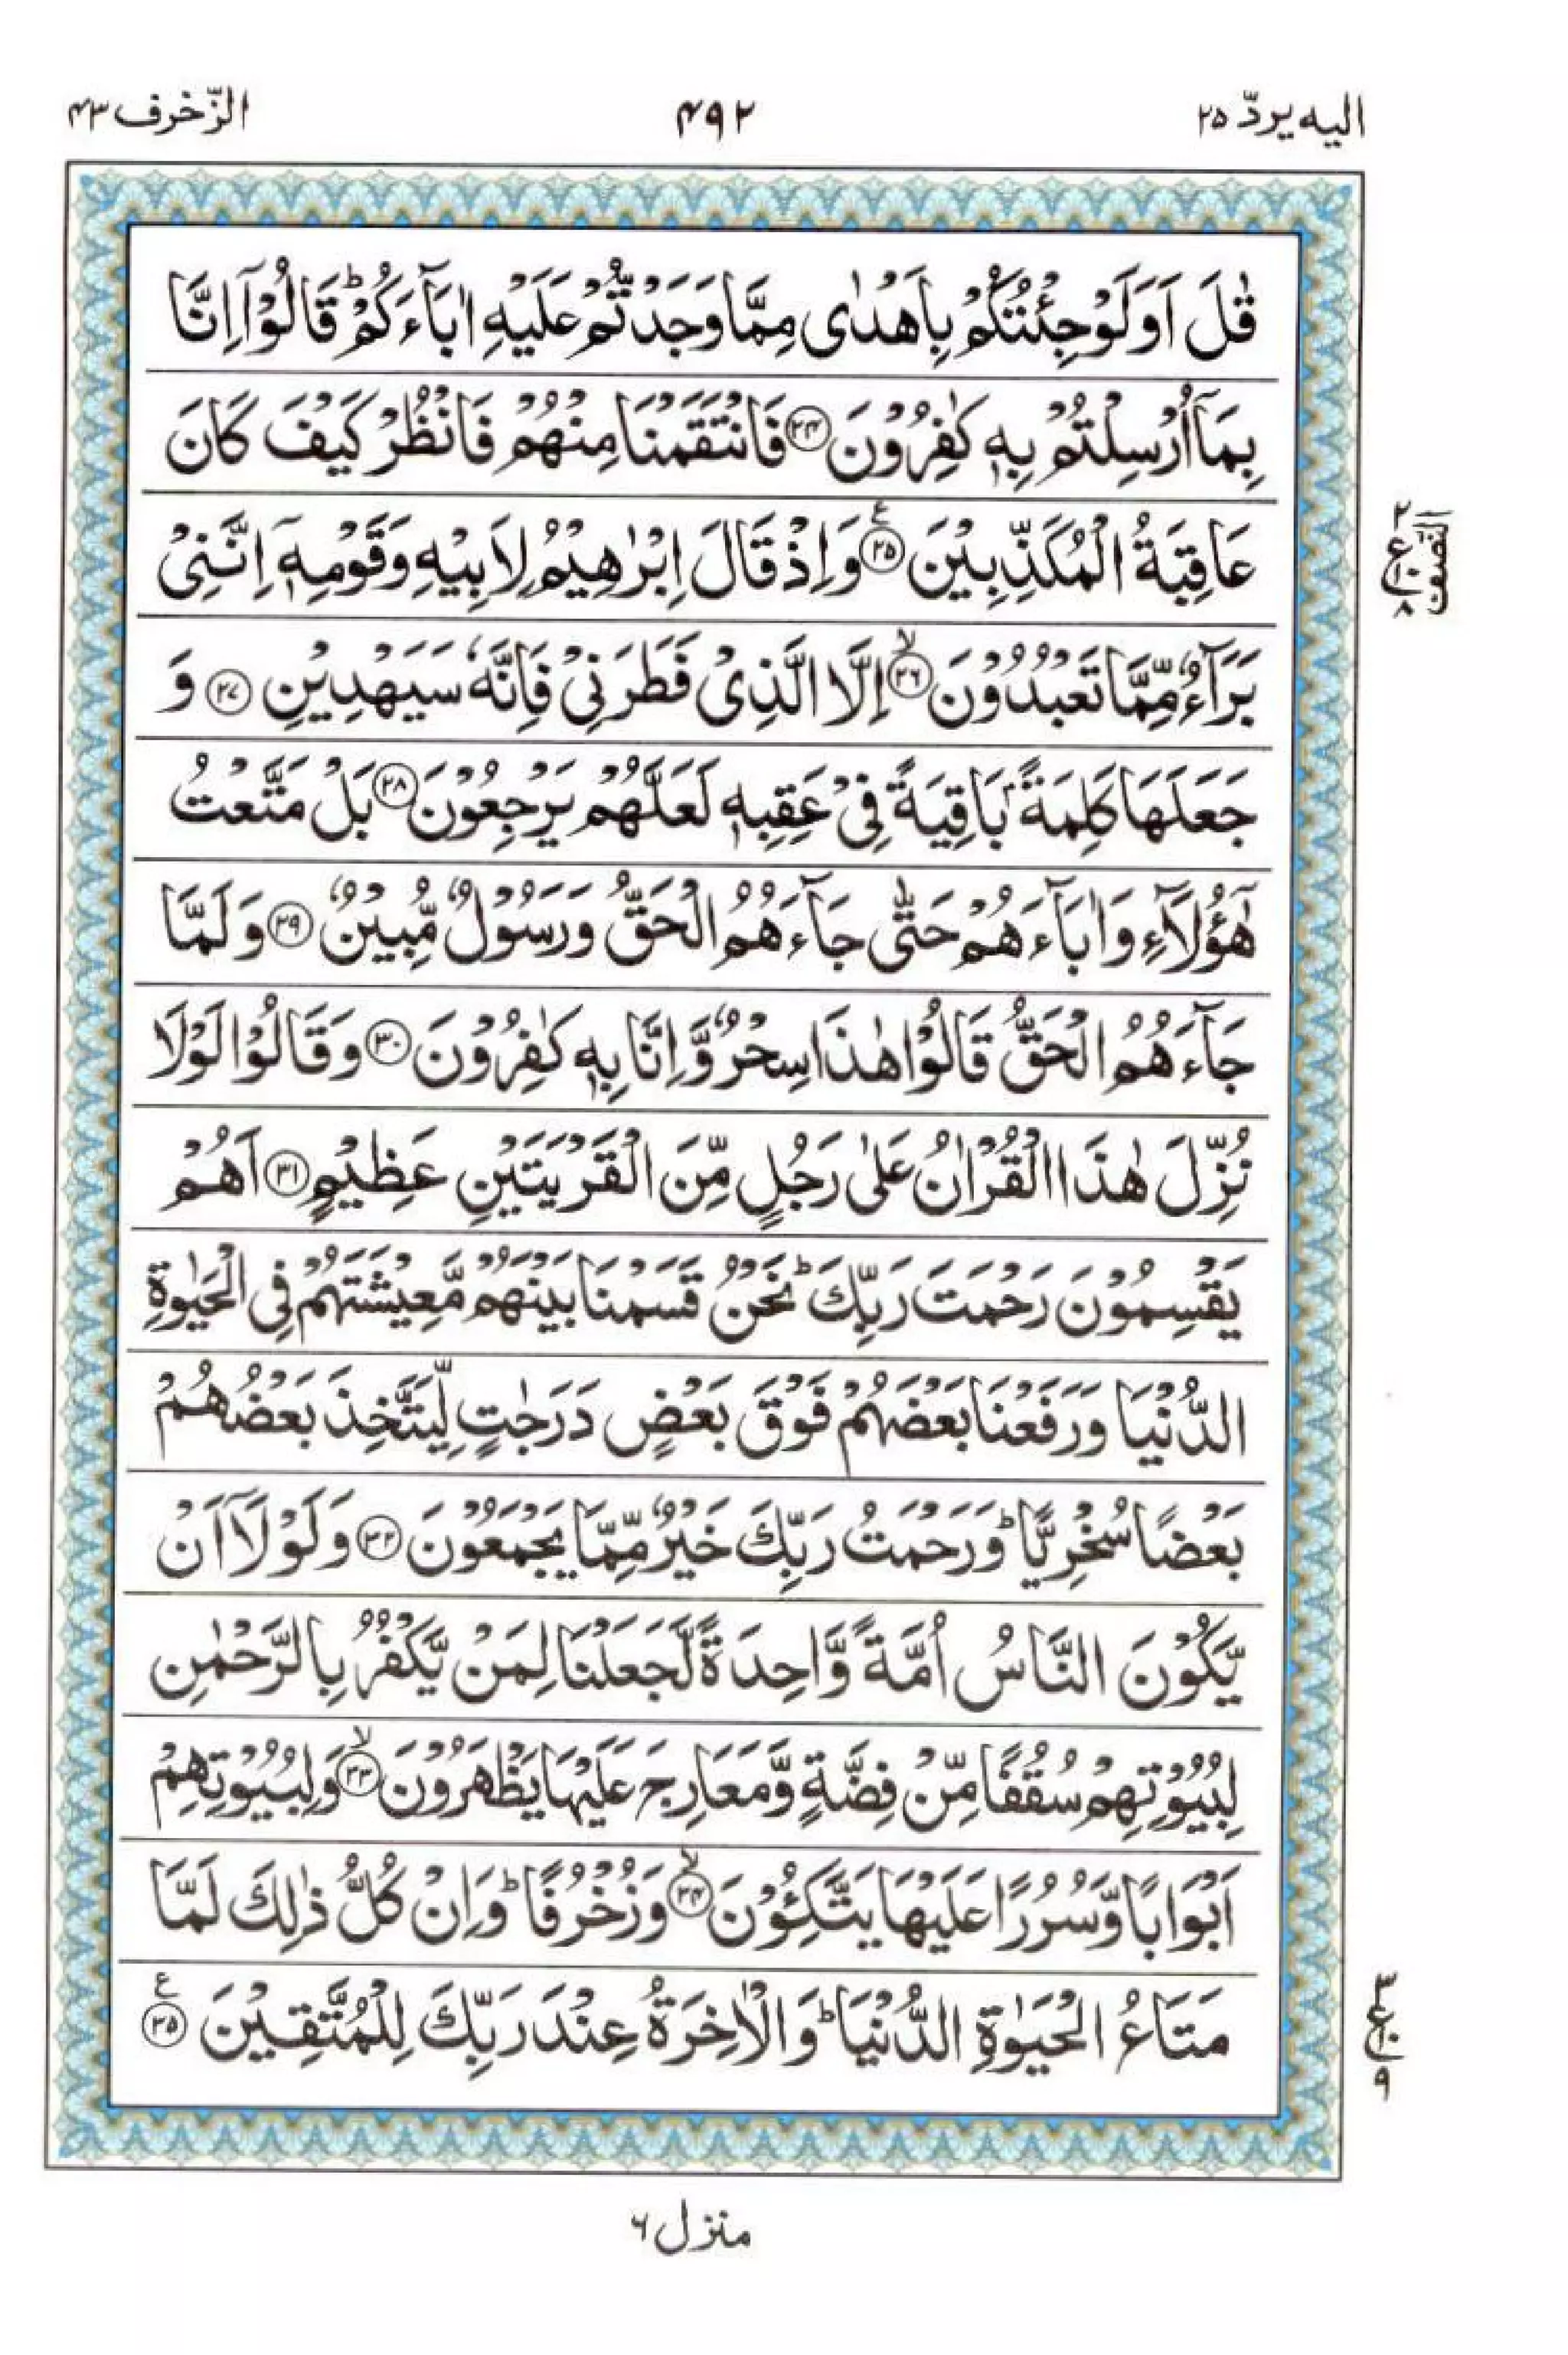 الیه یردّ ۲۵
۴۹۲
الزّخرف ۴۳
قٰلَ اَوَلَوْ جِئْتُكُمْ بِاَهْدٰى مِمَّا وَجَدْتُّمْ عَلَيْهِ اٰبَآءَكُمْ ؕ قَالُوْۤا اِنَّا
بِمَاۤ اُرْسِلْتُمْ بِهٖ كٰفِرُوْنَ ﴿۲۴﴾ فَانْتَقَمْنَا مِنْهُمْ فَانْظُرْ كَيْفَ كَانَ
عَاقِبَةُ الْمُكَذِّبِيْنَ ﴿۲۵﴾ ع وَاِذْ قَالَ اِبْرٰهِيْمُ لِاَبِيْهِ وَقَوْمِهٖۤ اِنَّنِىْ
بَرَآءٌ مِّمَّا تَعْبُدُوْنَ ﴿۲۶﴾ ۙ اِلَّا الَّذِىْ فَطَرَنِىْ فَاِنَّهٗ سَيَهْدِيْنِ ﴿۲۷﴾ وَ
جَعَلَهَا كَلِمَةًۢ بَاقِيَةً فِىْ عَقِبِهٖ لَعَلَّهُمْ يَرْجِعُوْنَ ﴿۲۸﴾ بَلْ مَتَّعْتُ
هٰٓؤُلَآءِ وَاٰبَآءَهُمْ حَتّٰى جَآءَهُمُ الْحَقُّ وَرَسُوْلٌ مُّبِيْنٌ ﴿۲۹﴾ وَلَمَّا
جَآءَهُمُ الْحَقُّ قَالُوْا هٰذَا سِحْرٌ وَّاِنَّا بِهٖ كٰفِرُوْنَ ﴿۳۰﴾ وَقَالُوْا لَوْلَا
نُزِّلَ هٰذَا الْقُرْاٰنُ عَلٰى رَجُلٍ مِّنَ الْقَرْيَتَيْنِ عَظِيْمٍ ﴿۳۱﴾ اَهُمْ
يَقْسِمُوْنَ رَحْمَتَ رَبِّكَ ؕ نَحْنُ قَسَمْنَا بَيْنَهُمْ مَّعِيْشَتَهُمْ فِى الْحَيٰوةِ
الدُّنْيَا وَرَفَعْنَا بَعْضَهُمْ فَوْقَ بَعْضٍ دَرَجٰتٍ لِّيَتَّخِذَ بَعْضُهُمْ
بَعْضًا سُخْرِيًّا ؕ وَرَحْمَتُ رَبِّكَ خَيْرٌ مِّمَّا يَجْمَعُوْنَ ﴿۳۲﴾ وَلَوْلَاۤ اَنْ
يَّكُوْنَ النَّاسُ اُمَّةً وَّاحِدَةً لَّجَعَلْنَا لِمَنْ يَّكْفُرُ بِالرَّحْمٰنِ
لِبُيُوْتِهِمْ سُقُفًا مِّنْ فِضَّةٍ وَّمَعَارِجَ عَلَيْهَا يَظْهَرُوْنَ ﴿۳۳﴾ ۙ وَلِبُيُوْتِهِمْ
اَبْوَابًا وَّسُرُرًا عَلَيْهَا يَتَّكِئُوْنَ ﴿۳۴﴾ ۙ وَزُخْرُفًا ؕ وَاِنْ كُلُّ ذٰلِكَ لَمَّا
مَتَاعُ الْحَيٰوةِ الدُّنْيَا ؕ وَالْاٰخِرَةُ عِنْدَ رَبِّكَ لِلْمُتَّقِيْنَ ﴿۳۵﴾ ع
النصف
۲
ع ۱۰
۸
۳
ع ۱۰
۹
منزل ۶